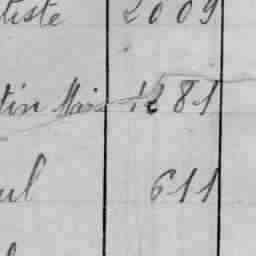 tiste 2009
tin Marie 1281
ul 611